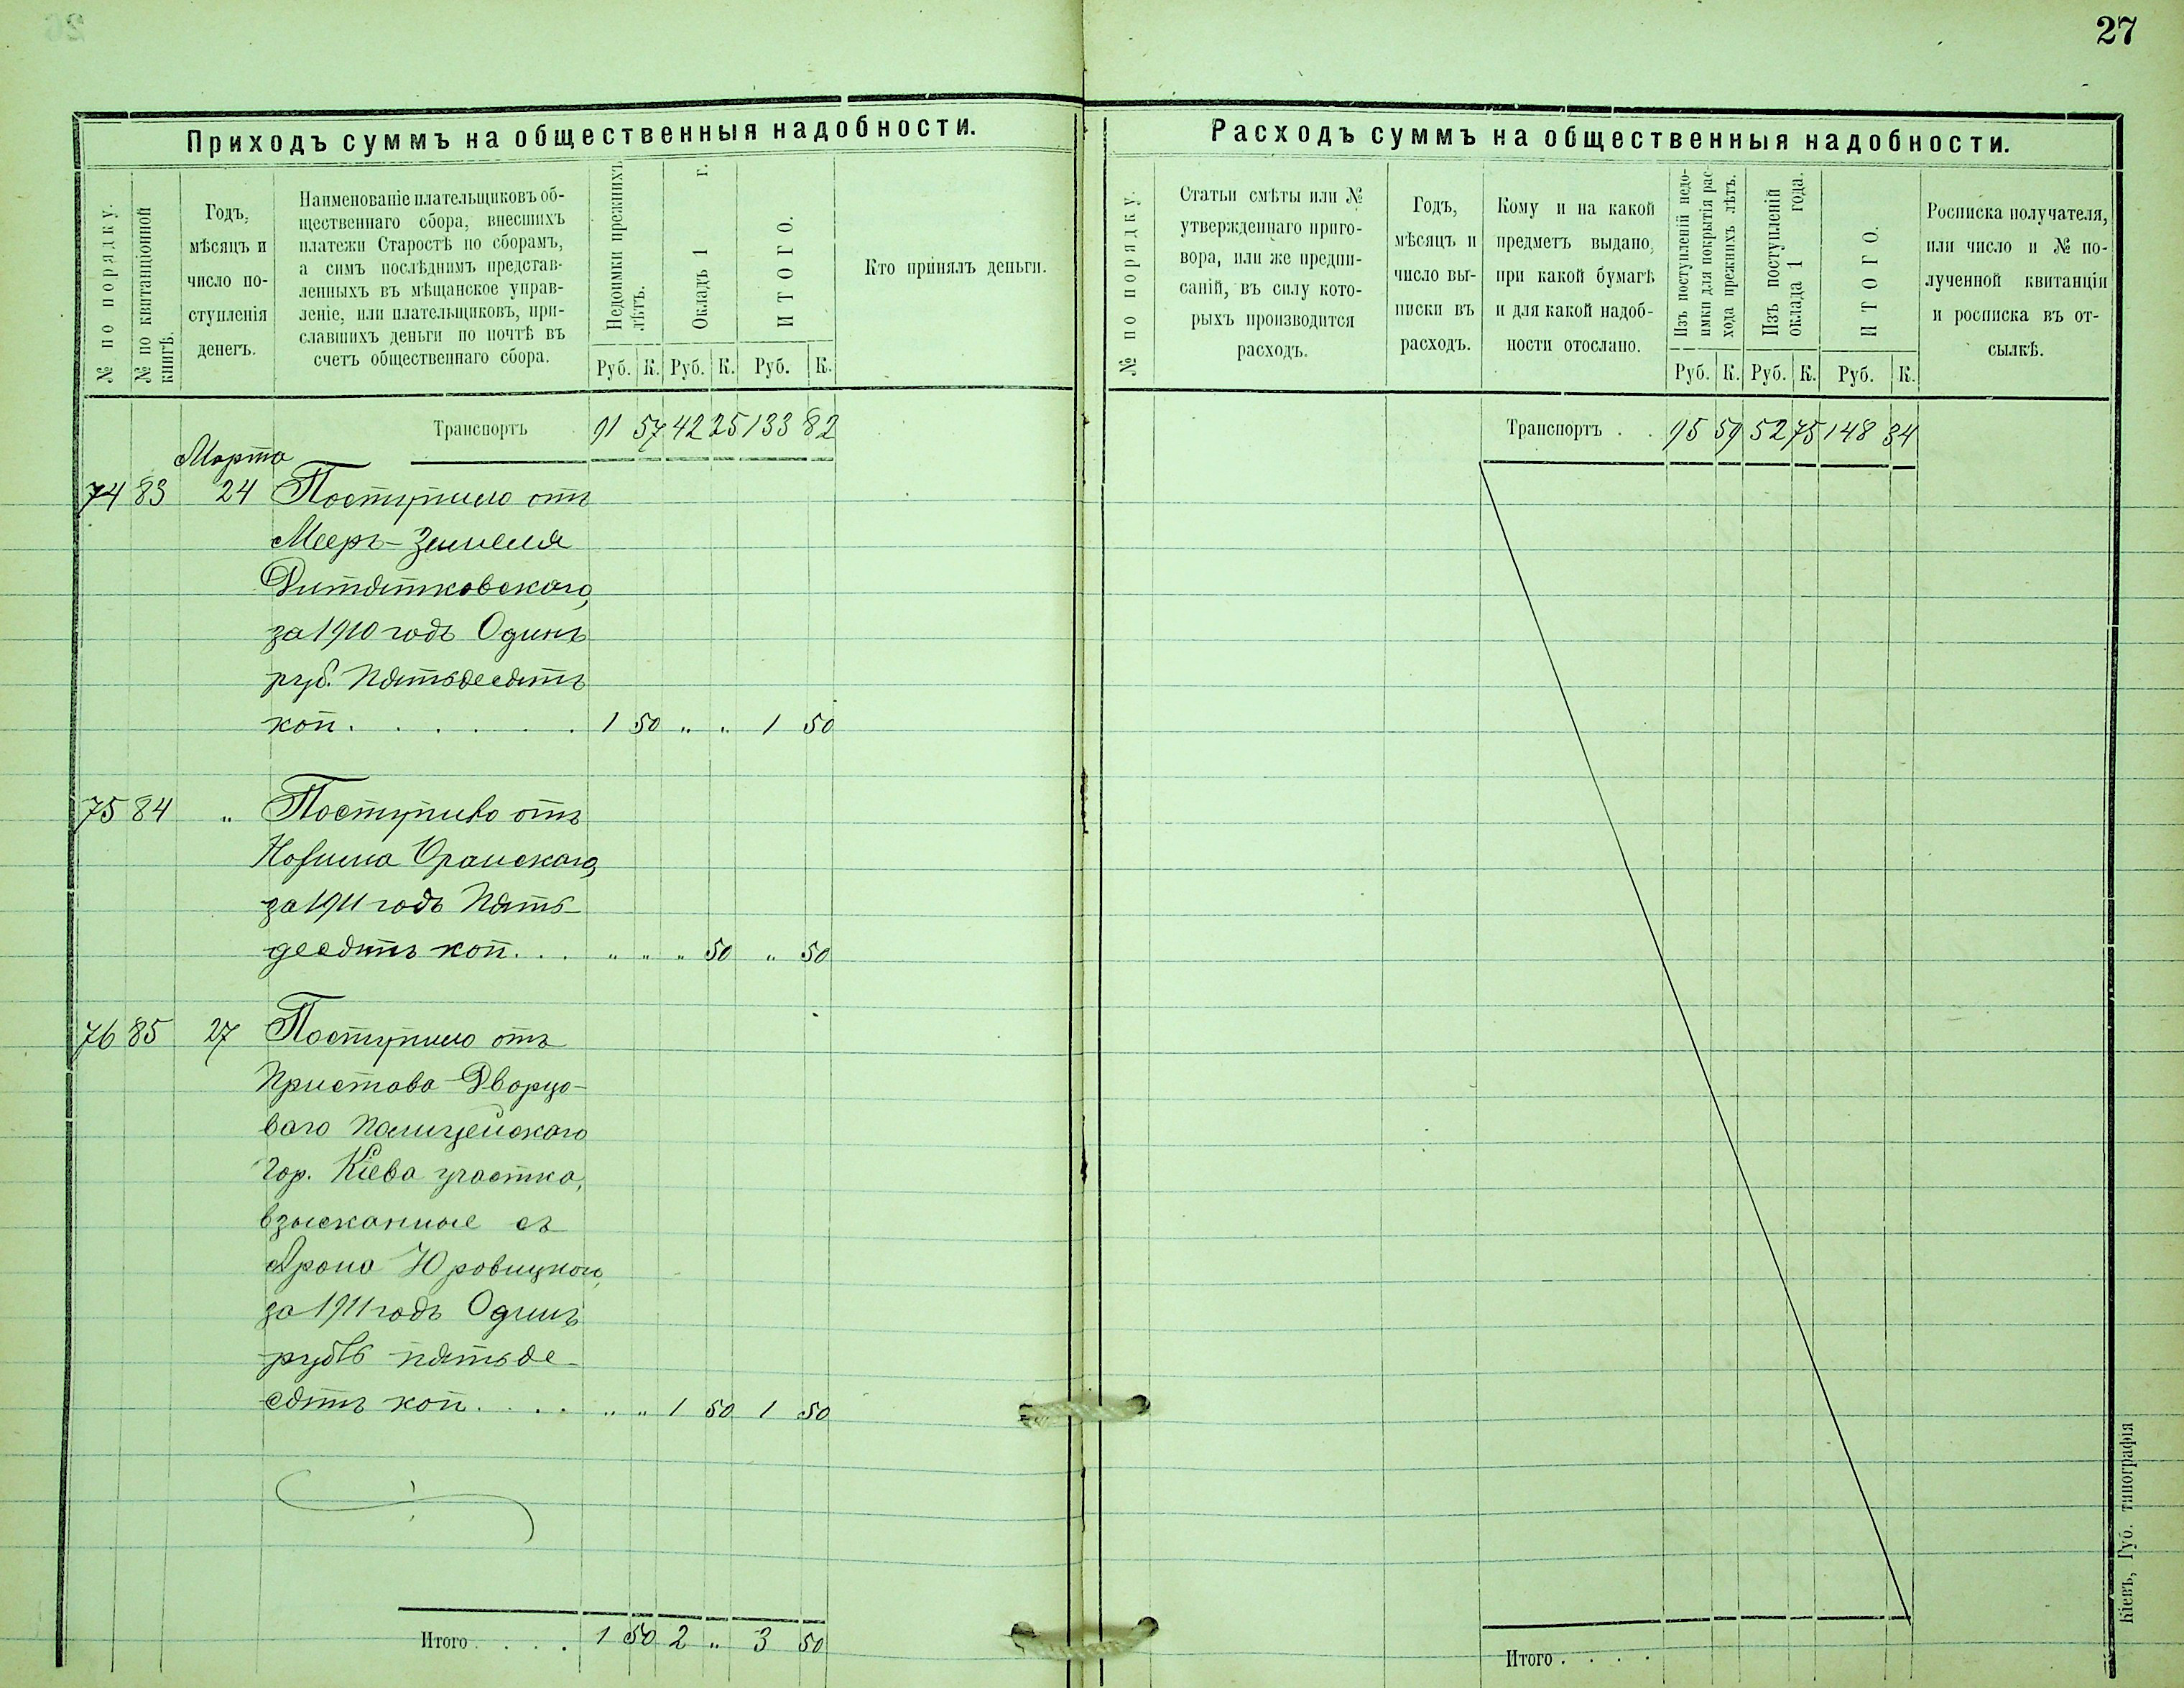 27
Приходъ суммъ на общественныя надобности.
№ по порядку.
№ по квитанціонной
книгѣ.
Годъ,
мѣсяцъ и
число по-
ступленія
денегъ.
Наименованіе плательщиковъ об-
щественнаго сбора, внесшихъ
платежи Старостѣ по сборамъ,
а симъ послѣднимъ представ-
ленныхъ въ мѣщанское управ-
леніе, или плательщиковъ, при-
славшихъ деньги по почтѣ въ
счетъ общественнаго сбора.
Недоимки прежнихъ
лѣтъ.
Окладъ 1 г.
ИТОГО.
Руб. К. Руб. К. Руб. К.
Кто принялъ деньги.
Транспортъ 91 57 42 25 133 82
Марта
74 83 24 Поступило отъ
Мееръ-Зимеля
Дитятковскаго,
за 1910 годъ Одинъ
руб. пятьдесятъ
коп. . . . . . . 1 50 „ „ 1 50
75 84 „ Поступило отъ
Оранскаго,
за 1911 годъ Пять-
десятъ коп. . . „ „ „ 50 „ 50
76 85 27 Поступило отъ
Пристава Дворцо-
ваго Полицейскаго
гор. Кіева участка,
взысканные съ
Арона Юровицкаго,
за 1911 годъ Одинъ
рубль пятьде-
сятъ коп. . . . „ „ 1 50 1 50
Итого . . . . 1 50 2 „ 3 50
Расходъ суммъ на общественныя надобности.
№ по порядку.
Статьи смѣты или №
утвержденнаго приго-
вора, или же предпи-
саній, въ силу кото-
рыхъ производится
расходъ.
Годъ,
мѣсяцъ и
число вы-
писки въ
расходъ.
Кому и на какой
предметъ выдано,
при какой бумагѣ
и для какой надоб-
ности отослано.
Изъ поступленій недо-
имки для покрытія рас-
хода прежнихъ лѣтъ.
Изъ поступленій
оклада 1 года.
ИТОГО.
Руб. К. Руб. К. Руб. К.
Росписка получателя,
или число и № по-
лученной квитанціи
и росписка въ от-
сылкѣ.
Транспортъ . . 95 59 52 75 148 34
Итого . . . .
Кіевъ, Губ. типографія